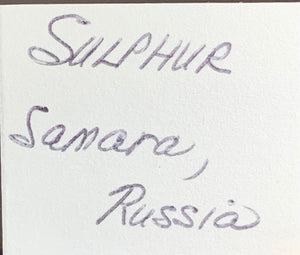 SULPHUR
Samara,
Russia